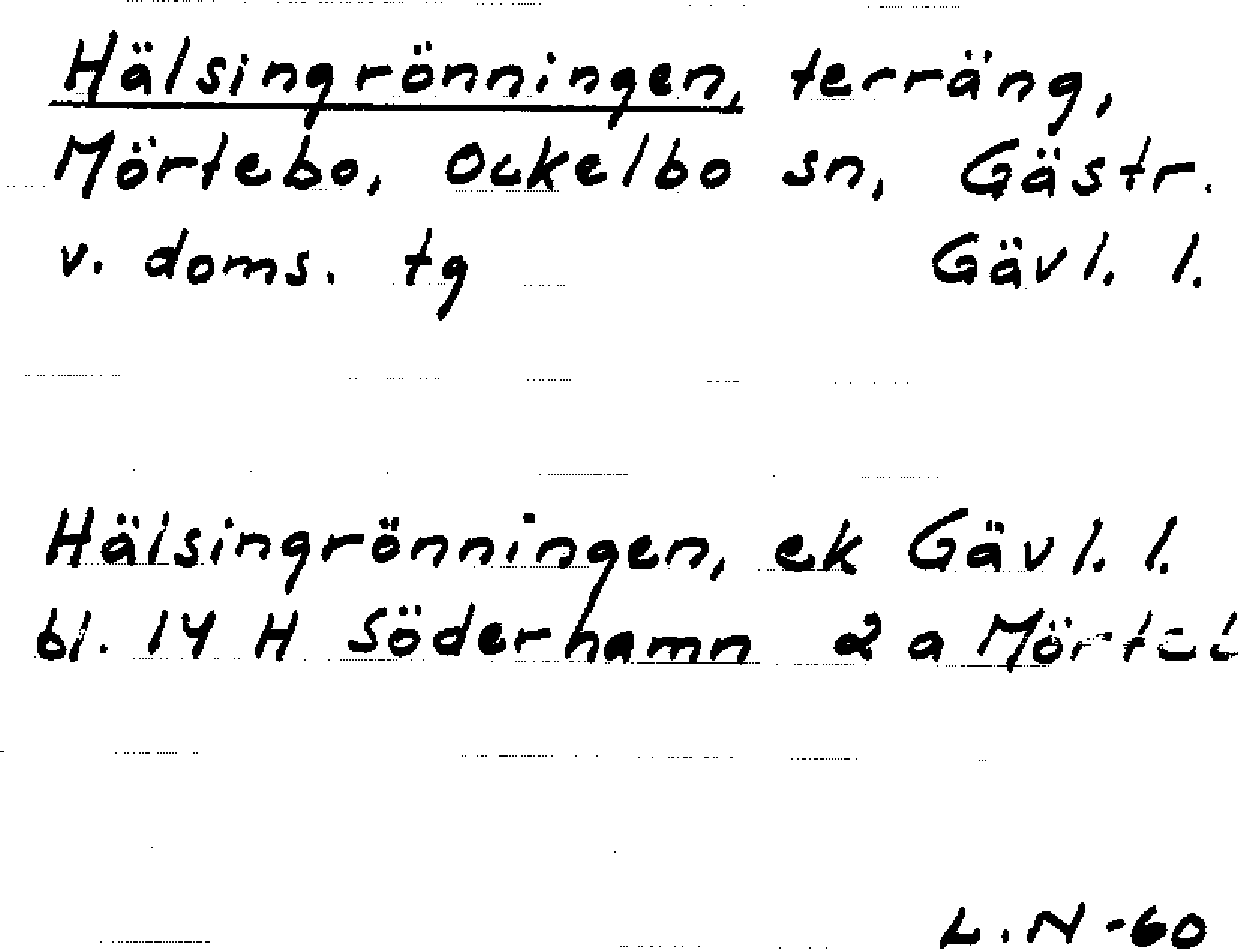 Hälsingrönningen, terräng,
Mörtebo, Ockelbo sn, Gästr.
v. doms. tg Gävl. l.
Hälsingrönningen, ek Gävl. l.
bl. 14 H Söderhamn 2 a
L.N-60